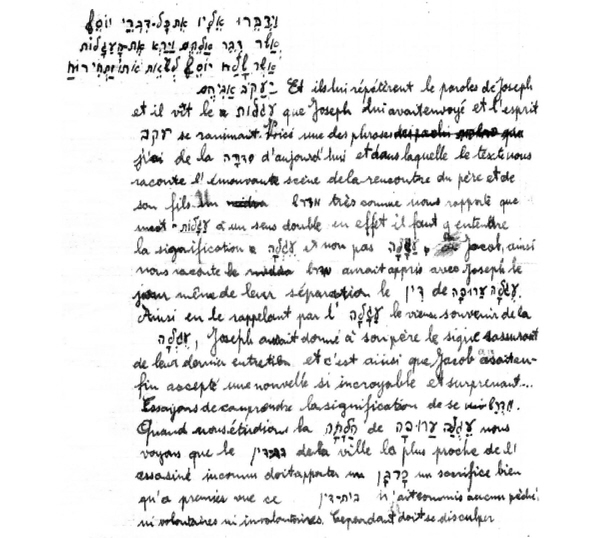 וידברו אליו את כל-דברי יוסף
אשר דבר אלהם וירא את-העגלות
אשר שלח יוסף לשאת אותו ותחי רוח
יעקב אביהם Et ils lui répétèrent le paroles de Joseph
et il vit le עגלות que Joseph lui avait envoyé et l'esprit
יעקב se ranimait. Voici une des phrases que
j'ai de la סדרה d'aujourd'hui et dans laquelle le texte nous
raconte l'émouvante scène de la rencontre du père et de
son fils. Un מדרש très comme nous rapporte que
mot עגלות à un sens double en effet il faut y entendre
la signification עֶגְלָה et non pas עֲגָלָה, Jacob, ainsi
nous raconte le מדרש aurait appris avec Joseph le
jour même de leur séparation le דין de עֶגְלָה עֲרוּפָה.
Ainsi en le rappelant par l' עֲגָלָה le vieux souvenir de la
עֶגְלָה, Joseph aurait donné à son père le signe rassurant
de leur dernier entretien et c'est ainsi que Jacob en-
fin accepté une nouvelle si incroyable et surprenant...
Essayons de comprendre la signification de se מדרש.
Quand nous étudions la הלכה de עגלה ערופה nous
voyons que le בית-דין de la ville la plus proche de l'
assasiné inconnu doit apporter un קרבן un sacrifice bien
qu'a premiés vue ce בית-דין n'ait comis aucun péché,
ni volontaires ni involontaires. Cependant doit se disculper